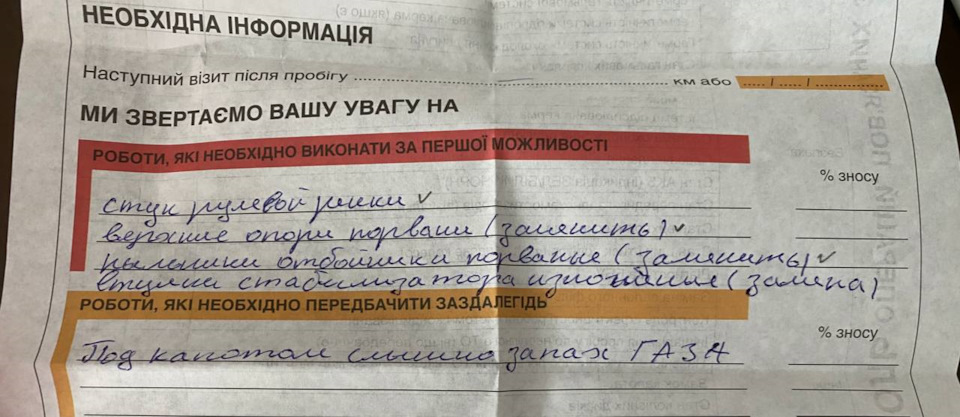 НЕОБХІДНА ІНФОРМАЦІЯ
Наступний візит після пробігу ........................ км або ..... / ..... / ...............
МИ ЗВЕРТАЄМО ВАШУ УВАГУ НА
РОБОТИ, ЯКІ НЕОБХІДНО ВИКОНАТИ ЗА ПЕРШОЇ МОЖЛИВОСТІ
% зносу
стук рулевой рейки ✓
верхние опори порвани (заменить) ✓
пыльники отбойники порваные (заменить) ✓
втулки стабилизатора изношение (замена)
РОБОТИ, ЯКІ НЕОБХІДНО ПЕРЕДБАЧИТИ ЗАЗДАЛЕГІДЬ
% зносу
Под капотом слышно запах ГАЗА